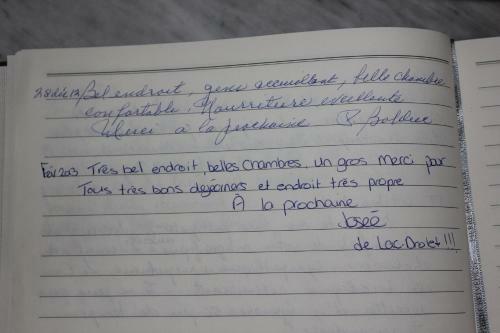 28 déc 12 Bel endroit, gens accueillant, belle chambre
confortable, Nourriture excellente
Merci à la prochaine R Bolduc
Fév 203 Très bel endroit, belles chambres, un gros merci pour
Tous très bons dejeuners et endroit très propre
À la prochaine
Joseé
de Lac-Drolet!!!